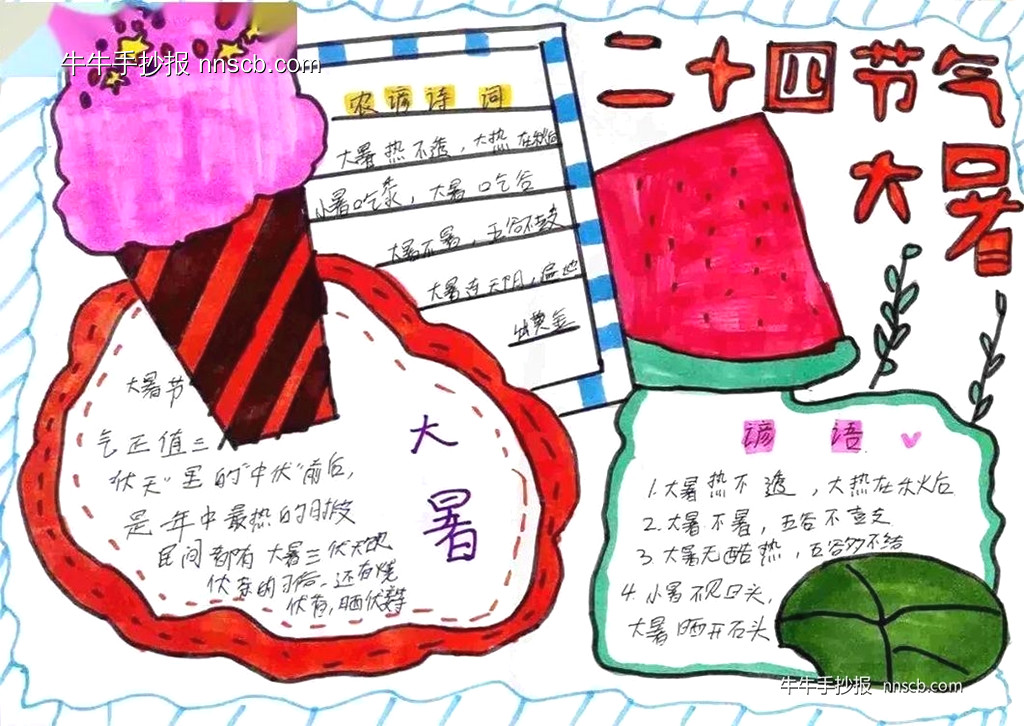 牛牛手抄报 nnscb.com
二十四节气
大暑
农谚诗词
大暑热不透，大热在秋后
小暑吃黍，大暑吃谷
大暑不暑，五谷不
大暑连天阴，遍地
出黄金
大暑节
气正值三
伏天"里的"中伏"前后，
是一年中最热的时
民间都有大暑三伏天
伏茶的习俗，还有烧
伏香，晒伏
大
暑
谚语
1.大暑热不透，大热在秋后
2.大暑不暑，五谷不
3.大暑无酷热，五谷多不结
4.小暑不见日头，
大暑晒开石头
牛牛手抄报 nnscb.com